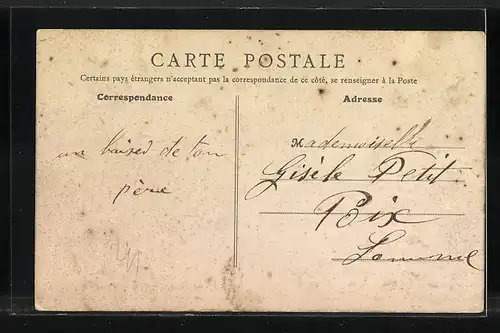 CARTE POSTALE
Certains pays étrangers n'acceptent pas la correspondance de ce côté, se renseigner à la Poste
Correspondance
Adresse
un baiser de ton
père
Mademoiselle
Gisèle Petit
Poix
Somme